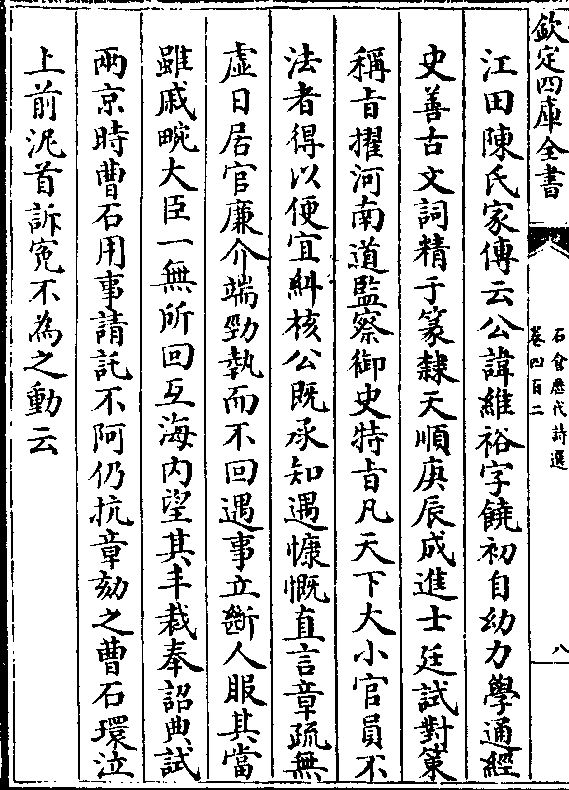 欽定四庫全書
石倉歷代詩選
卷四百二
八
江田陳氏家傳云公諱維裕字饒初自幼力學通經
史善古文詞精于篆隸天順庚辰成進士廷試對策
稱旨擢河南道監察御史特旨凡天下大小官員不
法者得以便宜糾核公既承知遇慷慨直言章疏無
虛日居官廉介端勁執而不回遇事立斷人服其當
雖戚畹大臣一無所回互海內望其丰裁奉詔典試
兩京時曹石用事請託不阿仍抗章劾之曹石環泣
上前泥首訴冤不為之動云